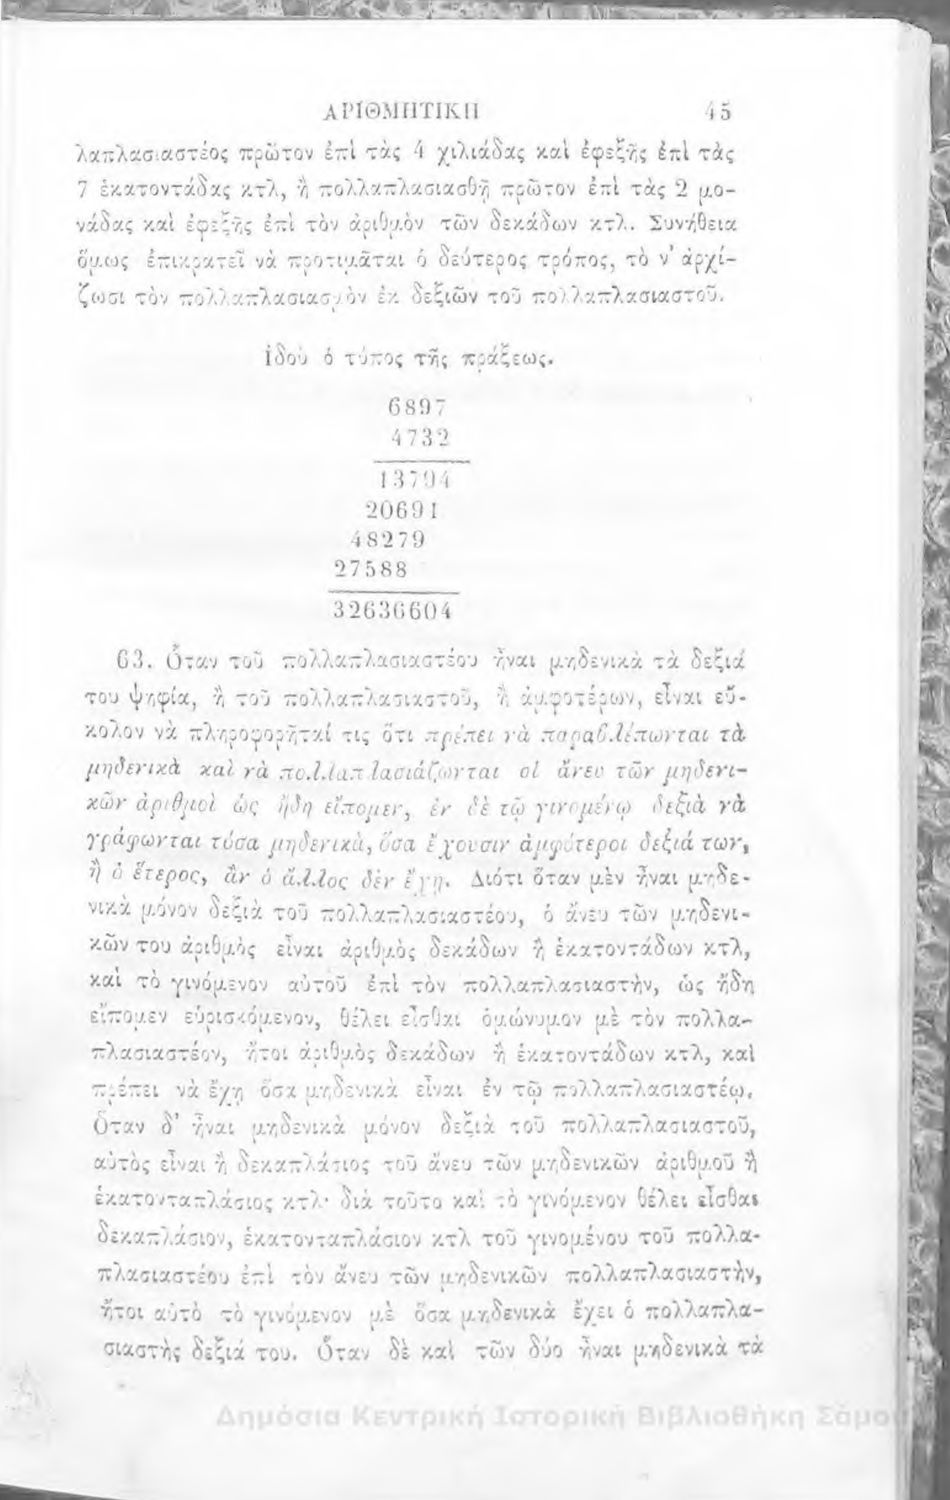 ΑΡΙΘΜΗΤΙΚΗ 45
λαπλασιαστέος πρῶτον ἐπὶ τὰς 4 χιλιάδας καὶ ἐφεξῆς ἐπὶ τὰς
7 ἑκατοντάδας κτλ, ἢ πολλαπλασιασθῇ πρῶτον ἐπὶ τὰς 2 μο-
νάδας καὶ ἐφεξῆς ἐπὶ τὸν ἀριθμὸν τῶν δεκάδων κτλ. Συνήθεια
ὅμως ἐπικρατεῖ νὰ προτιμᾶται ὁ δεύτερος τρόπος, τὸ ν' ἀρχί-
ζωσι τὸν πολλαπλασιασμὸν ἐκ δεξιῶν τοῦ πολλαπλασιαστοῦ.
ἰδοὺ ὁ τύπος τῆς πράξεως.
6897
4732
13794
20691
48279
27588
32636604
63. Ὅταν τοῦ πολλαπλασιαστέου ἦναι μηδενικὰ τὰ δεξιά
του ψηφία, ἢ τοῦ πολλαπλασιαστοῦ, ἢ ἀμφοτέρων, εἶναι εὔ-
κολον νὰ πληροφορῆταί τις ὅτι πρέπει νὰ παραβλέπωνται τὰ
μηδενικὰ καὶ νὰ πολλαπλασιάζωνται οἱ ἄνευ τῶν μηδενι-
κῶν ἀριθμοὶ ὡς ἤδη εἴπομεν, ἐν δὲ τῷ γινομένῳ δεξιὰ νὰ
γράφωνται τόσα μηδενικὰ, ὅσα ἔχουσιν ἀμφότεροι δεξιά των,
ἢ ὁ ἕτερος, ἂν ὁ ἄλλος δὲν ἔχῃ. Διότι ὅταν μὲν ἦναι μηδε-
νικὰ μόνον δεξιὰ τοῦ πολλαπλασιαστέου, ὁ ἄνευ τῶν μηδενι-
κῶν του ἀριθμὸς εἶναι ἀριθμὸς δεκάδων ἢ ἑκατοντάδων κτλ,
καὶ τὸ γινόμενον αὐτοῦ ἐπὶ τὸν πολλαπλασιαστὴν, ὡς ἤδη
εἴπομεν εὑρισκόμενον, θέλει εἶσθαι ὁμώνυμον μὲ τὸν πολλα-
πλασιαστέον, ἤτοι ἀριθμὸς δεκάδων ἢ ἑκατοντάδων κτλ, καὶ
πρέπει νὰ ἔχῃ ὅσα μηδενικὰ εἶναι ἐν τῷ πολλαπλασιαστέῳ.
Ὅταν δ' ἦναι μηδενικὰ μόνον δεξιὰ τοῦ πολλαπλασιαστοῦ,
αὐτὸς εἶναι ἢ δεκαπλάσιος τοῦ ἄνευ τῶν μηδενικῶν ἀριθμοῦ ἢ
ἑκατονταπλάσιος κτλ· διὰ τοῦτο καὶ τὸ γινόμενον θέλει εἶσθαι
δεκαπλάσιον, ἑκατονταπλάσιον κτλ τοῦ γινομένου τοῦ πολλα-
πλασιαστέου ἐπὶ τὸν ἄνευ τῶν μηδενικῶν πολλαπλασιαστὴν,
ἤτοι αὐτὸ τὸ γινόμενον μὲ ὅσα μηδενικὰ ἔχει ὁ πολλαπλα-
σιαστὴς δεξιά του. Ὅταν δὲ καὶ τῶν δύο ἦναι μηδενικὰ τὰ
Δημόσια Κεντρική Ιστορική Βιβλιοθήκη Σάμου